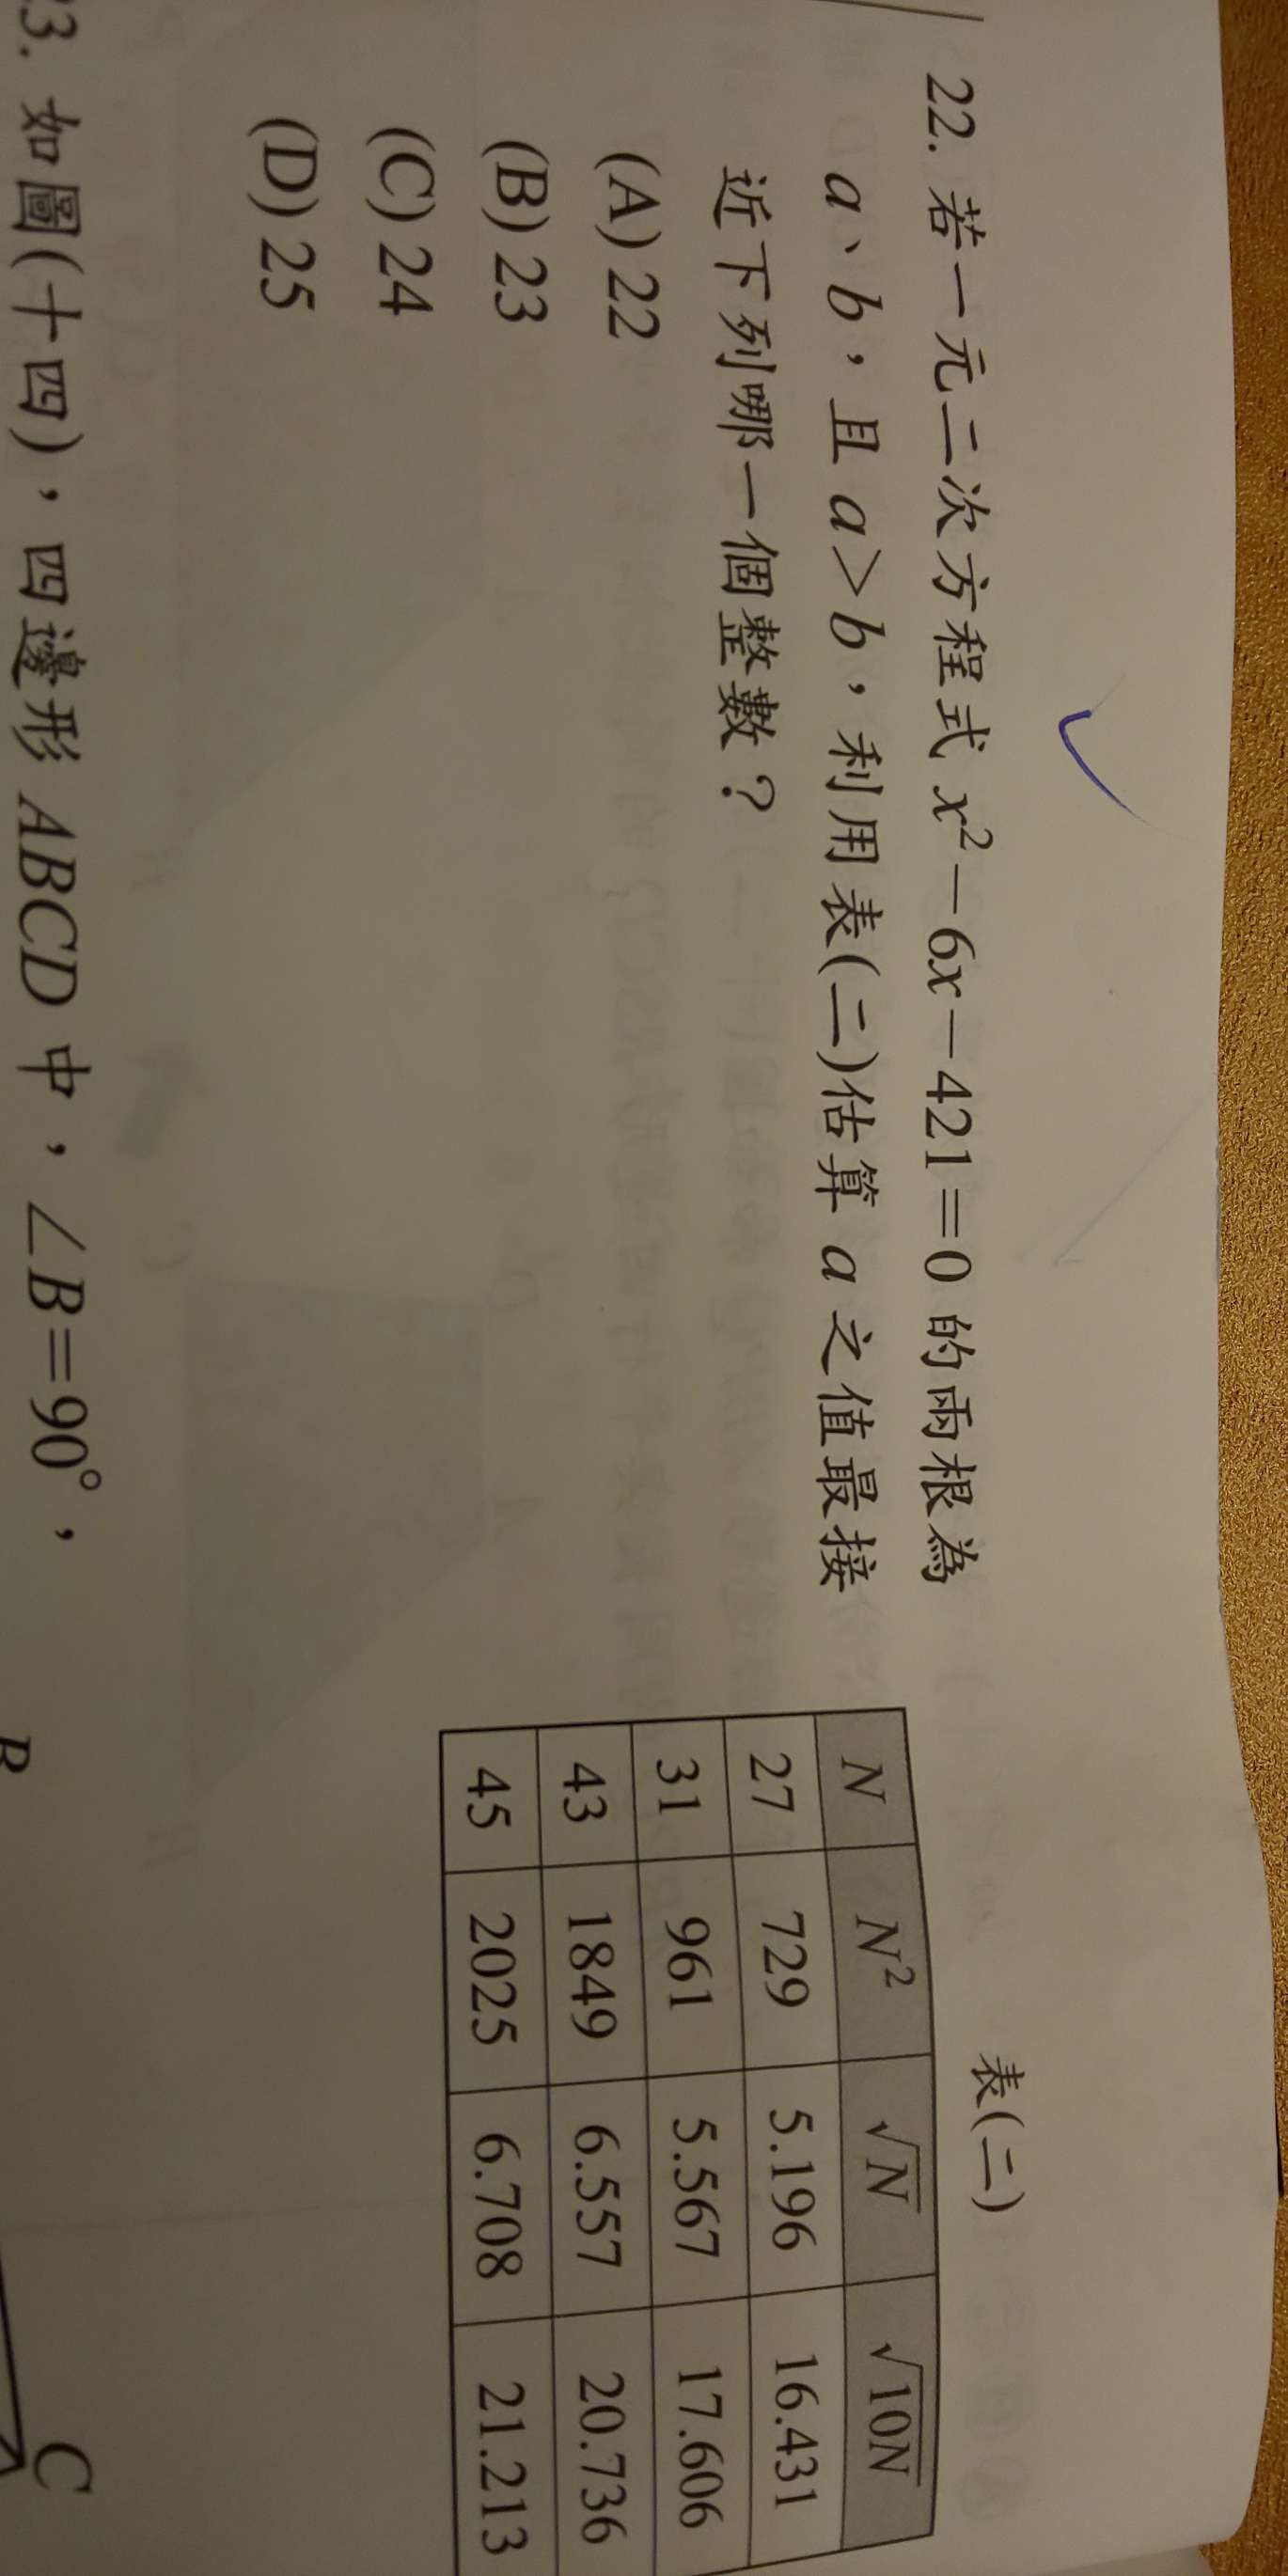 22. 若一元二次方程式 x²－6x－421＝0 的兩根為
a、b，且 a＞b，利用表(二)估算 a 之值最接
近下列哪一個整數？
(A) 22
(B) 23
(C) 24
(D) 25
表(二)
N N² √N √10N
27 729 5.196 16.431
31 961 5.567 17.606
43 1849 6.557 20.736
45 2025 6.708 21.213
3. 如圖(十四)，四邊形 ABCD 中，∠B＝90°，
C